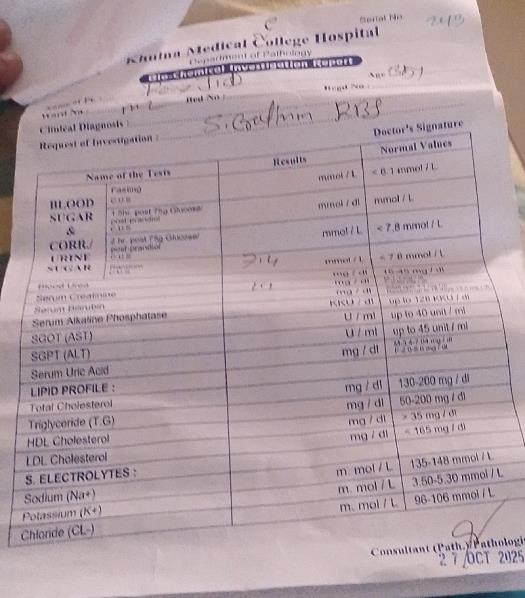 Serial No. 243
Khulna Medical College Hospital
Department of Pathology
Bio-Chemical Investigation Report
Age
Ward No.: Bed No : Regd No :
Clinical Diagnosis :
Request of Investigation : S. Creatinin RBS
Doctor's Signature
Name of the Tests Results Normal Values
BLOOD SUGAR & CORR./ URINE SUGAR
Fasting mmol / L < 6.1 mmol / L
C.U.S
1.5hr. post 75g Glucose/ post-prandial mmol / dl mmol / L
C.U.S
2 hr. post 75g Glucose/ post-prandial mmol / L < 7.8 mmol / L
C.U.S
Random 7.4 mmol / L < 7.8 mmol / L
C.U.S
Blood Urea mg / dl 15-45 mg / dl
Serum Creatinine mg / dl
Serum Bilirubin mg / dl
Serum Alkaline Phosphatase KKU / dl up to 128 KKU / dl
SGOT (AST) U / ml up to 40 unit / ml
SGPT (ALT) U / ml up to 45 unit / ml
Serum Uric Acid mg / dl
LIPID PROFILE :
Total Cholesterol mg / dl 130-200 mg / dl
Triglyceride (T.G) mg / dl 50-200 mg / dl
HDL Cholesterol mg / dl > 35 mg / dl
LDL Cholesterol mg / dl < 165 mg / dl
S. ELECTROLYTES :
Sodium (Na+) m. mol / L 135-148 mmol / L
Potassium (K+) m. mol / L 3.50-5.30 mmol / L
Chloride (CL-) m. mol / L 96-106 mmol / L
Consultant (Path.)/Pathologi
27 OCT 2025